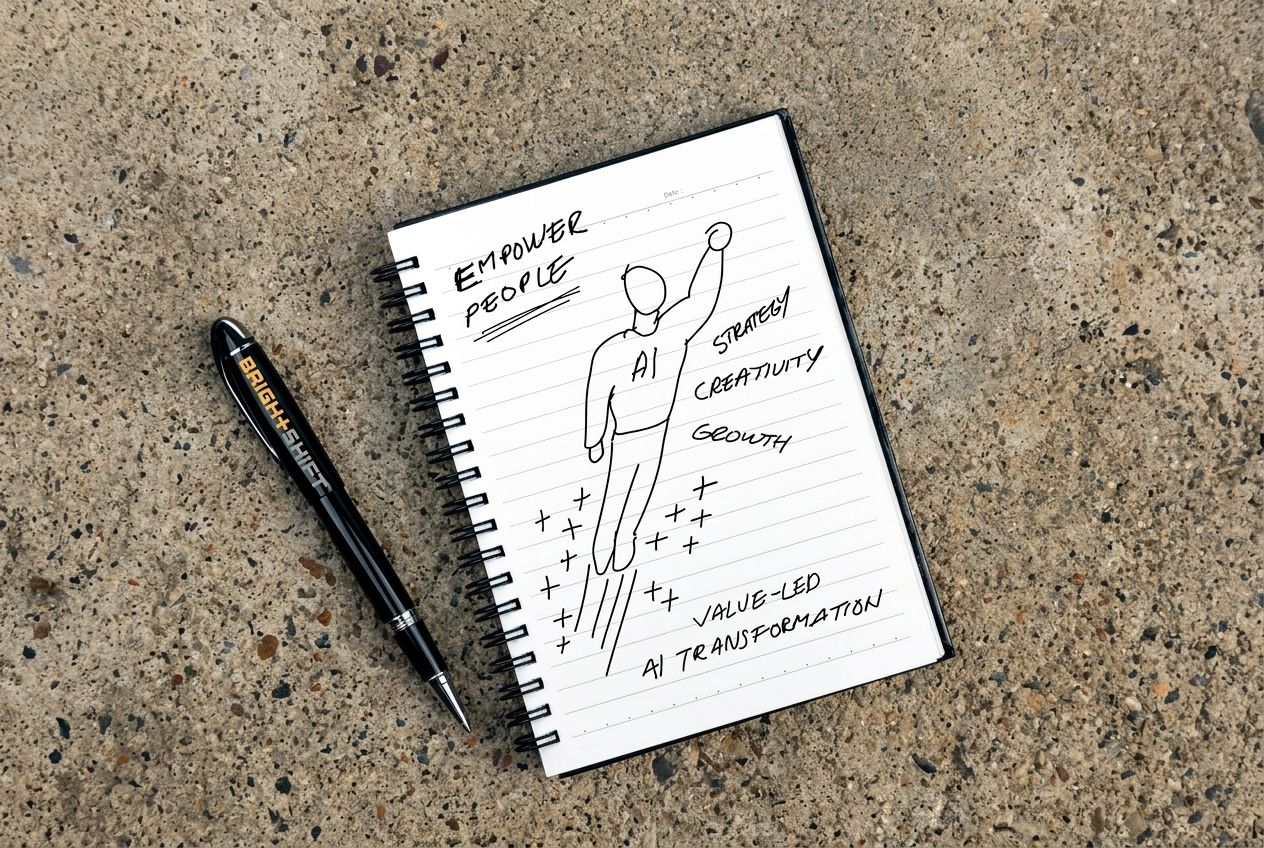 Date :
EMPOWER
PEOPLE
AI
STRATEGY
CREATIVITY
GROWTH
VALUE-LED
AI TRANSFORMATION
BRIGH+SHIFT